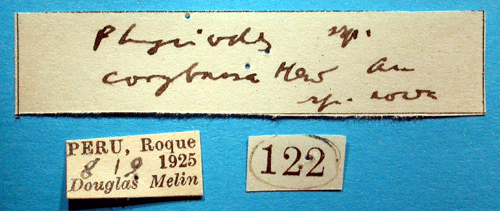 Phyciodes sp.
corybassa Hew An
sp. nova
PERU, Roque
8 19 1925
Douglas Melin
122